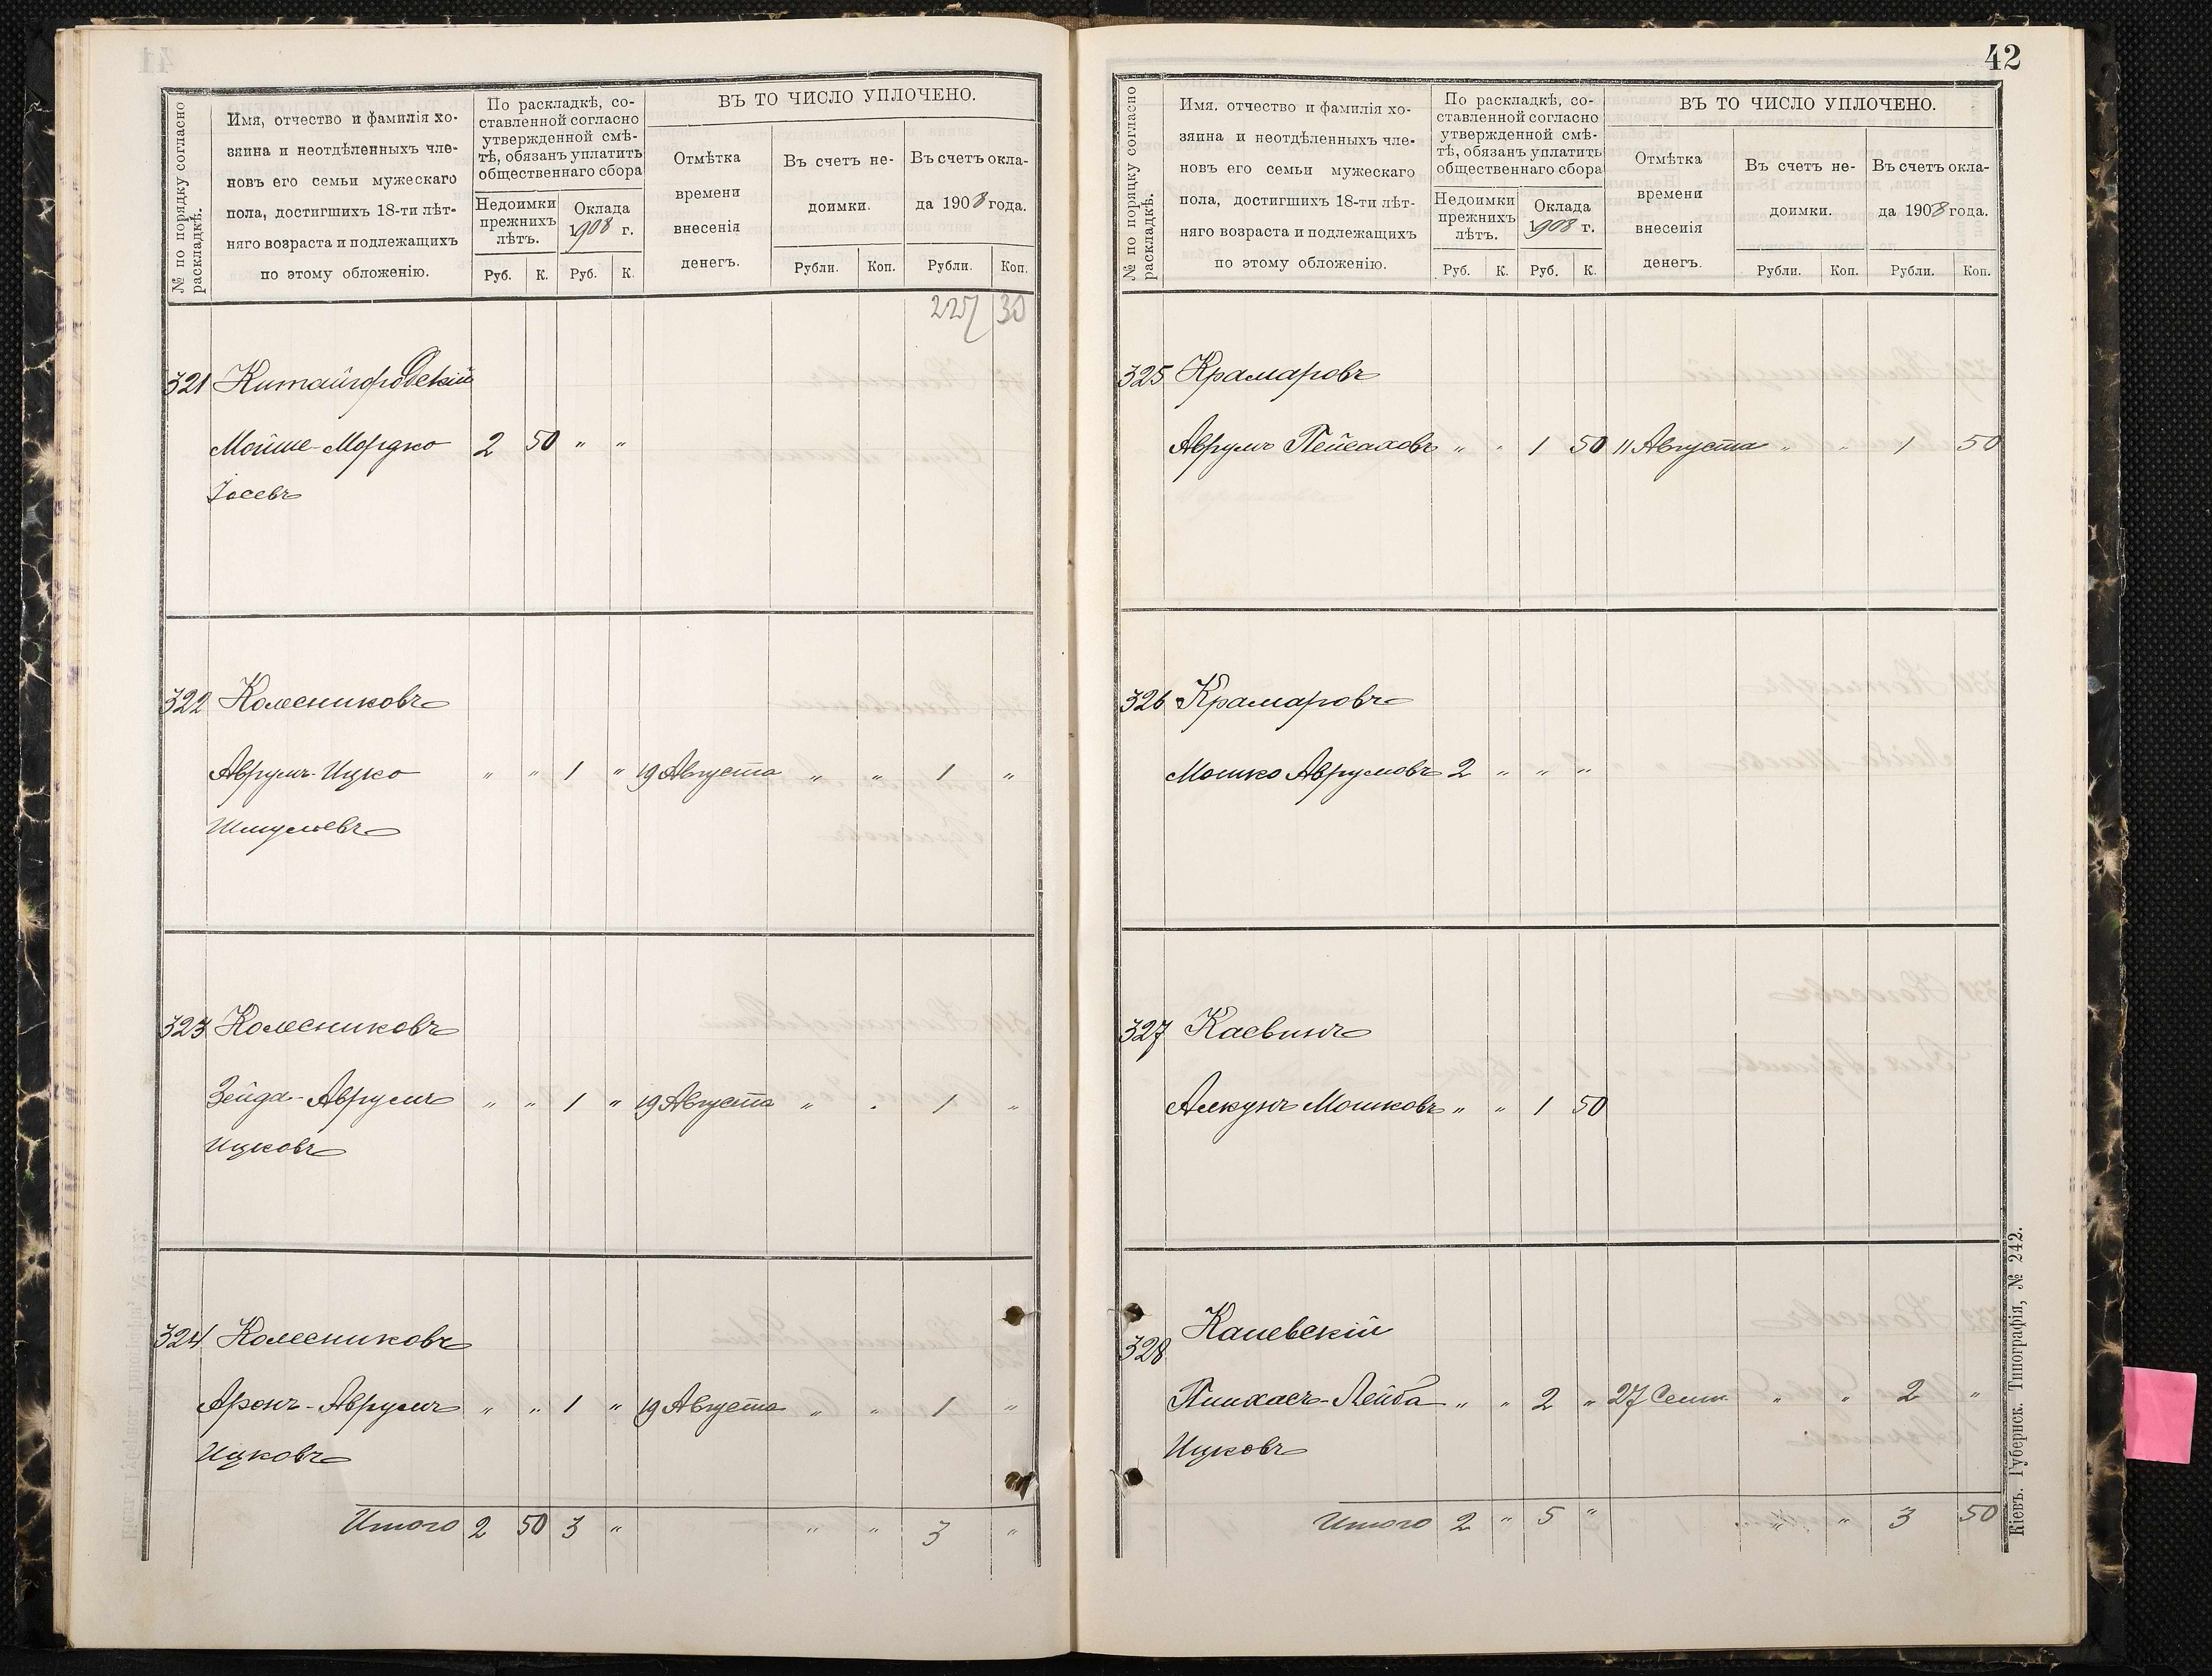 № по порядку согласно раскладкѣ.
Имя, отчество и фамилія хо-
зяина и неотдѣленныхъ чле-
новъ его семьи мужескаго
пола, достигшихъ 18-ти лѣт-
няго возраста и подлежащихъ
по этому обложенію.
По раскладкѣ, со-
ставленной согласно
утвержденной смѣ-
тѣ, обязанъ уплатить
общественнаго сбора
Недоимки
прежнихъ
лѣтъ.
Оклада
1908 г.
Руб. К. Руб. К.
ВЪ ТО ЧИСЛО УПЛОЧЕНО.
Отмѣтка
времени
внесенія
денегъ.
Въ счетъ не-
доимки.
Въ счетъ окла-
да 1908 года.
Рубли. Коп. Рубли. Коп.
225 30
321 Китайгородскій
Мойше-Мордко 2 50 " "
Іосевъ
322 Колесниковъ
Аврумъ-Ицко " " 1 " 19 Августа " " 1 "
Шмулевъ
323 Колесниковъ
Зейда-Аврумъ " " 1 " 19 Августа " " 1 "
Ицковъ
324 Колесниковъ
Аронъ-Аврумъ " " 1 " 19 Августа " " 1 "
Ицковъ
Итого 2 50 3 " " " 3 "
42
№ по порядку согласно раскладкѣ.
Имя, отчество и фамилія хо-
зяина и неотдѣленныхъ чле-
новъ его семьи мужескаго
пола, достигшихъ 18-ти лѣт-
няго возраста и подлежащихъ
по этому обложенію.
По раскладкѣ, со-
ставленной согласно
утвержденной смѣ-
тѣ, обязанъ уплатить
общественнаго сбора
Недоимки
прежнихъ
лѣтъ.
Оклада
1908 г.
Руб. К. Руб. К.
ВЪ ТО ЧИСЛО УПЛОЧЕНО.
Отмѣтка
времени
внесенія
денегъ.
Въ счетъ не-
доимки.
Въ счетъ окла-
да 1908 года.
Рубли. Коп. Рубли. Коп.
325 Крамаровъ
Аврумъ Пейсаховъ " " 1 50 11 Августа " " 1 50
326 Крамаровъ
Мошко Аврумовъ 2 " " "
327 Каевинъ
Алкунъ Мошковъ " " 1 50
328 Каневскій
Пинхасъ-Лейба " " 2 " 27 Сент. " " 2 "
Ицковъ
Итого 2 " 5 " " " 3 50
Кіевъ. Губернск. Типографія, № 242.